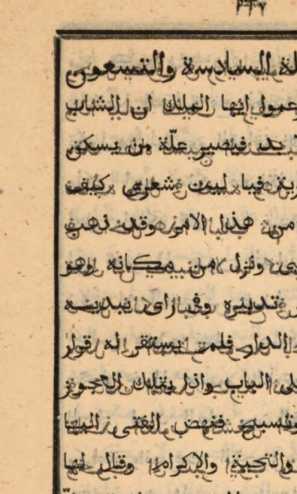 ٣٣٧
لة السادسة والتسعون
عموا ايها الملك ان الشاب
بد فيصير علّة من يسكن
فيا ليت شعري كيف
من هذا الامر وقد ذهب
ونزل من مكانه وهو
تدبيره وفي راى
الدار فلم يستقر له قرار
الباب واذا بتلك العجوز
فنهض الفتى اليها
والتحية والاكرام وقال لها